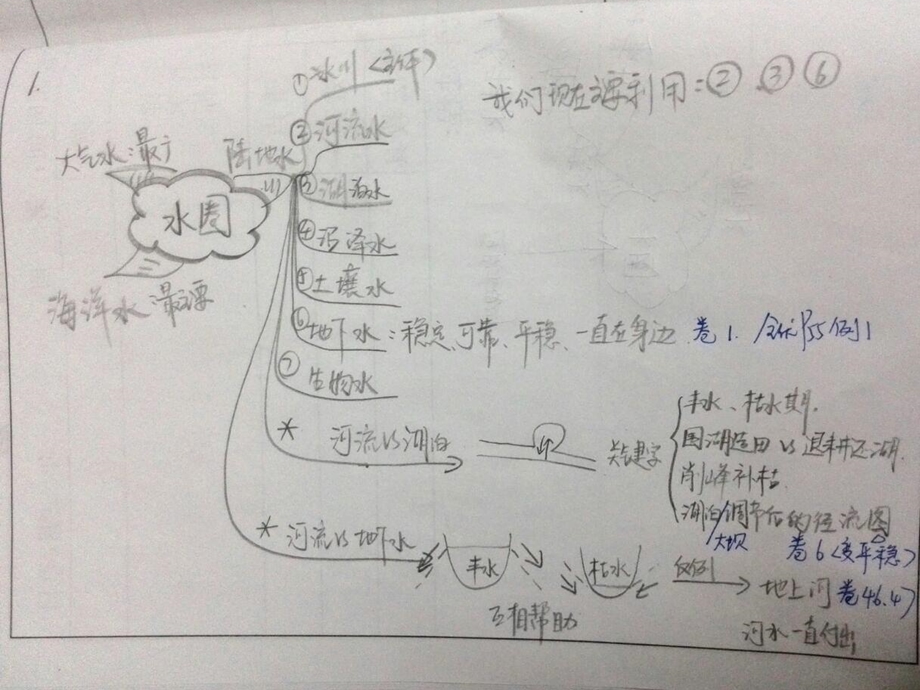 1.
①冰川〈主体〉
我们现在主要利用：②.③⑥
②河流水
大气水：最广
陆地水
③湖泊水
水圈
④沼泽水
海洋水：最主要
⑤土壤水
⑥地下水：稳定、可靠、平稳、一直在身边 卷1. P55例1
⑦生物水
* 河流vs湖泊
关键字
丰水、枯水期.
围湖造田vs退耕还湖.
削峰补枯.
湖泊调节后的径流图
大坝
卷6〈变平稳〉
* 河流vs地下水
丰水
枯水
互相帮助
反例
地上河 卷46.47
河水一直付出